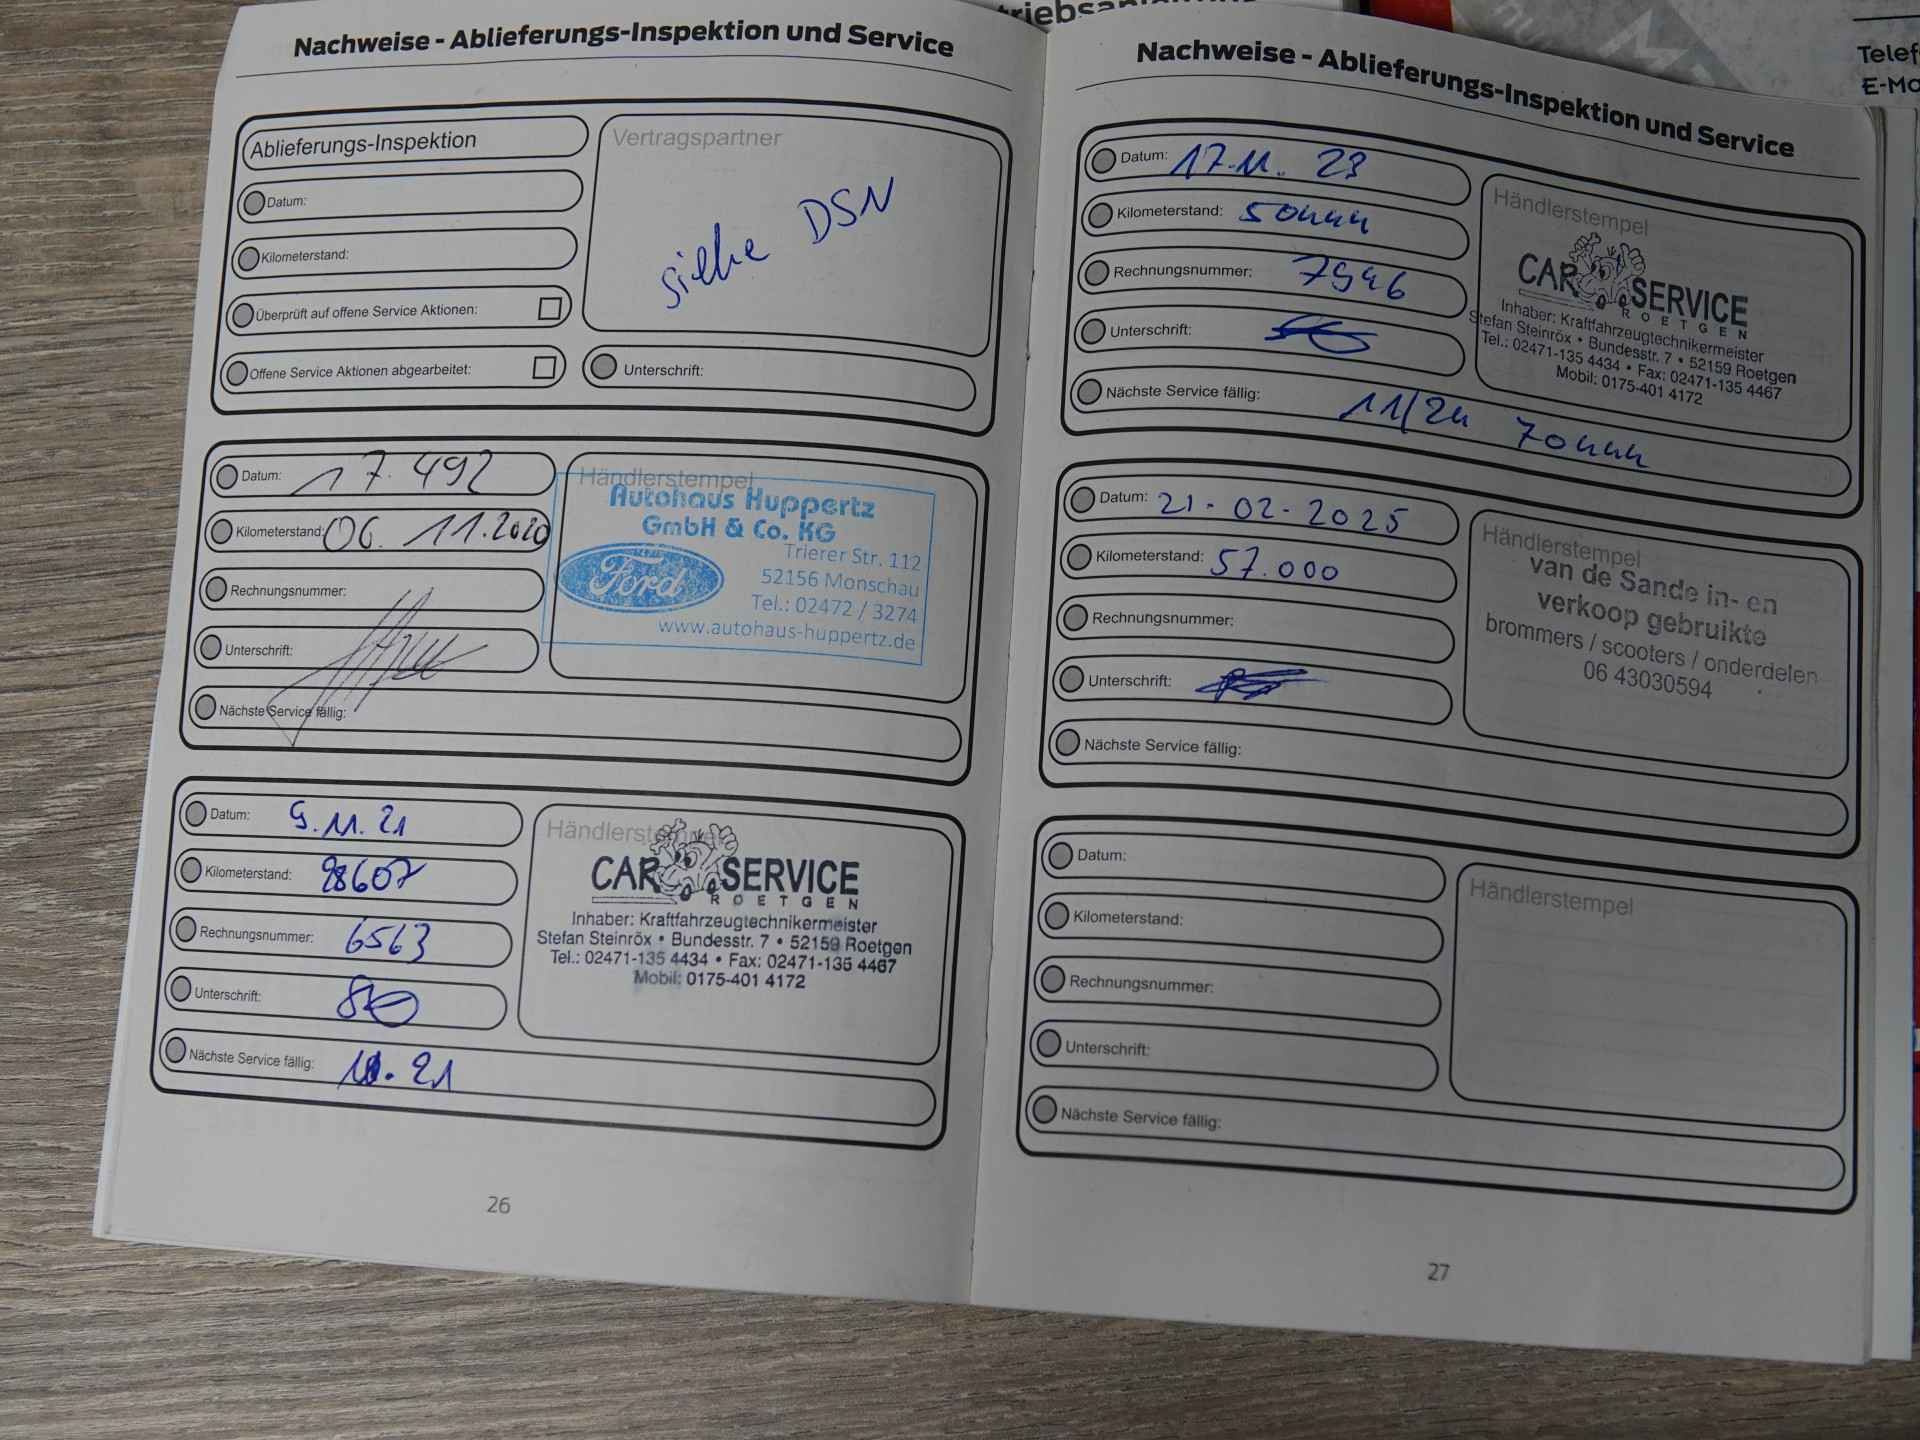 Telef
E-Mo
Nachweise - Ablieferungs-Inspektion und Service
Ablieferungs-Inspektion
Datum:
Kilometerstand:
Überprüft auf offene Service Aktionen:
Offene Service Aktionen abgearbeitet:
Vertragspartner
siehe DSN
Unterschrift:
Datum: 17.492
Kilometerstand: 06. 11.2020
Rechnungsnummer:
Unterschrift:
Nächste Service fällig:
Händlerstempel
Autohaus Huppertz
GmbH & Co. KG
Ford
Trierer Str. 112
52156 Monschau
Tel.: 02472 / 3274
www.autohaus-huppertz.de
Datum: 9.11.21
Kilometerstand: 28607
Rechnungsnummer: 6563
Unterschrift:
Nächste Service fällig:
Händlerstempel
CAR SERVICE
ROETGEN
Inhaber: Kraftfahrzeugtechnikermeister
Stefan Steinröx • Bundesstr. 7 • 52159 Roetgen
Tel.: 02471-135 4434 • Fax: 02471-135 4467
Mobil: 0175-401 4172
26
Nachweise - Ablieferungs-Inspektion und Service
Datum: 17.11. 23
Kilometerstand:
Rechnungsnummer: 7946
Unterschrift:
Nächste Service fällig: 11/24
Händlerstempel
CAR SERVICE
ROETGEN
Inhaber: Kraftfahrzeugtechnikermeister
Stefan Steinröx • Bundesstr. 7 • 52159 Roetgen
Tel.: 02471-135 4434 • Fax: 02471-135 4467
Mobil: 0175-401 4172
Datum: 21-02-2025
Kilometerstand: 57.000
Rechnungsnummer:
Unterschrift:
Nächste Service fällig:
Händlerstempel
van de Sande in- en
verkoop gebruikte
brommers / scooters / onderdelen
06 43030594
Datum:
Kilometerstand:
Rechnungsnummer:
Unterschrift:
Nächste Service fällig:
Händlerstempel
27